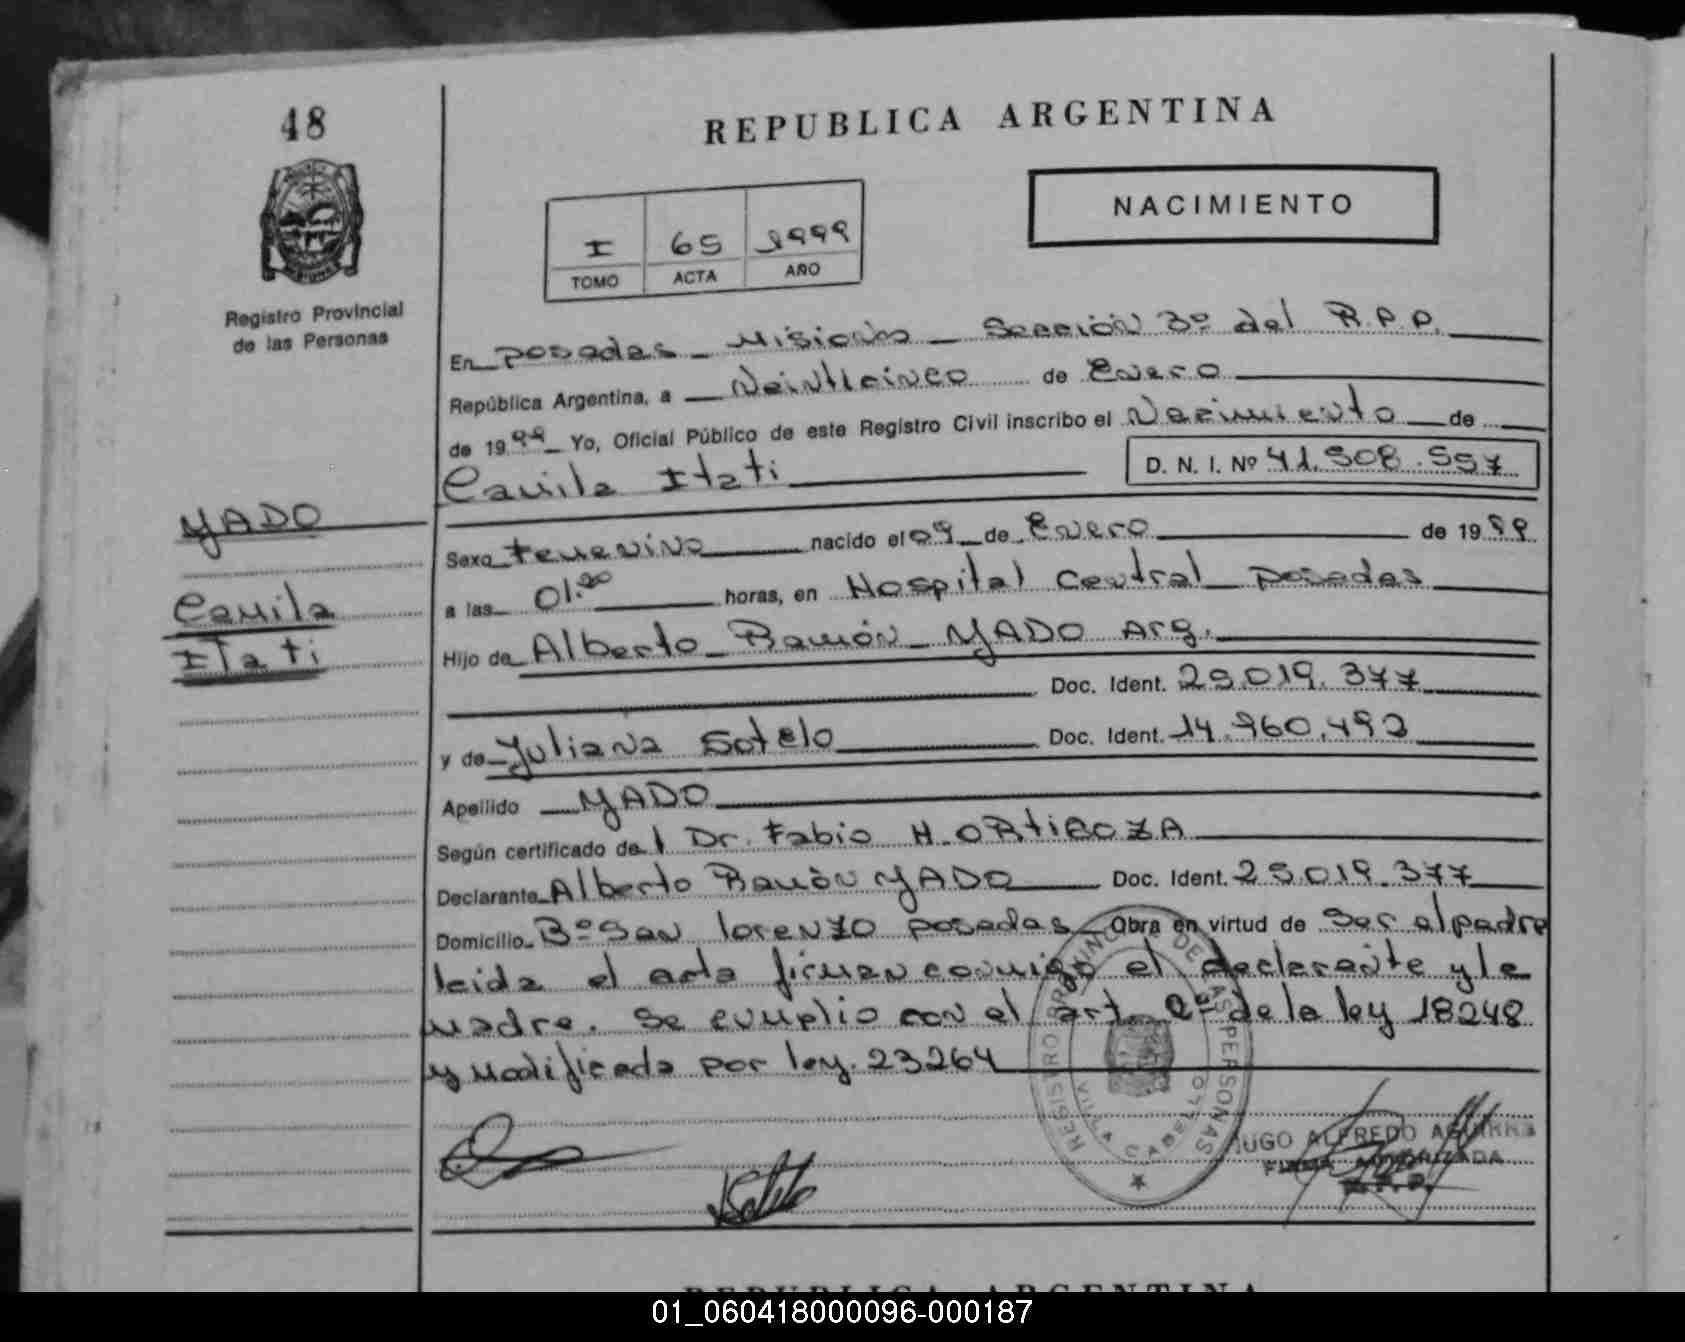 48
REPUBLICA ARGENTINA
NACIMIENTO
I 65 1999
TOMO ACTA AÑO
Registro Provincial
de las Personas
En Posadas - Misiones - Sección 3º del R.P.P.
República Argentina, a Veinticinco de Enero
de 1999 Yo, Oficial Público de este Registro Civil inscribo el Nacimiento de
Camila Itati D. N. I. Nº 41.508.557
YADO
Camila
Itati
Sexo Femenino nacido el 09 de Enero de 1999
a las 01.20 horas, en Hospital Central Posadas
Hijo de Alberto Ramón YADO Arg.
Doc. Ident. 25.019.377
y de Juliana Sotelo Doc. Ident. 14.960.492
Apellido YADO
Según certificado del Dr. Fabio H. ORTIBOZA
Declarante Alberto Ramón YADO Doc. Ident. 25.019.377
Domicilio Bº San Lorenzo Posadas Obra en virtud de ser el padre
leida el acta firman conmigo el declarante y la
madre. Se cumplio con el art. 2º de la ley 18248
y modificada por ley. 23264
REGISTRO PROVINCIAL DE LAS PERSONAS
VILLA CABELLO
HUGO ALFREDO AGUIRRE
FIRMA AUTORIZADA
R.P.P.
REPUBLICA ARGENTINA
01_060418000096-000187